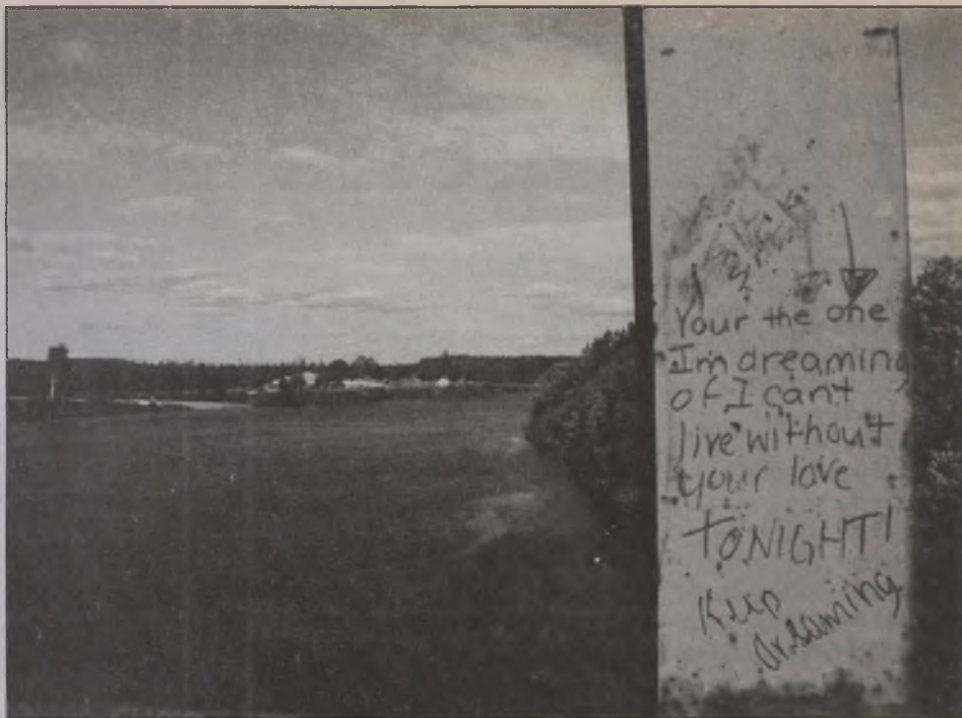 Your the one
I'm dreaming
of I can't
live without
your love
TONIGHT!
Keep
dreaming